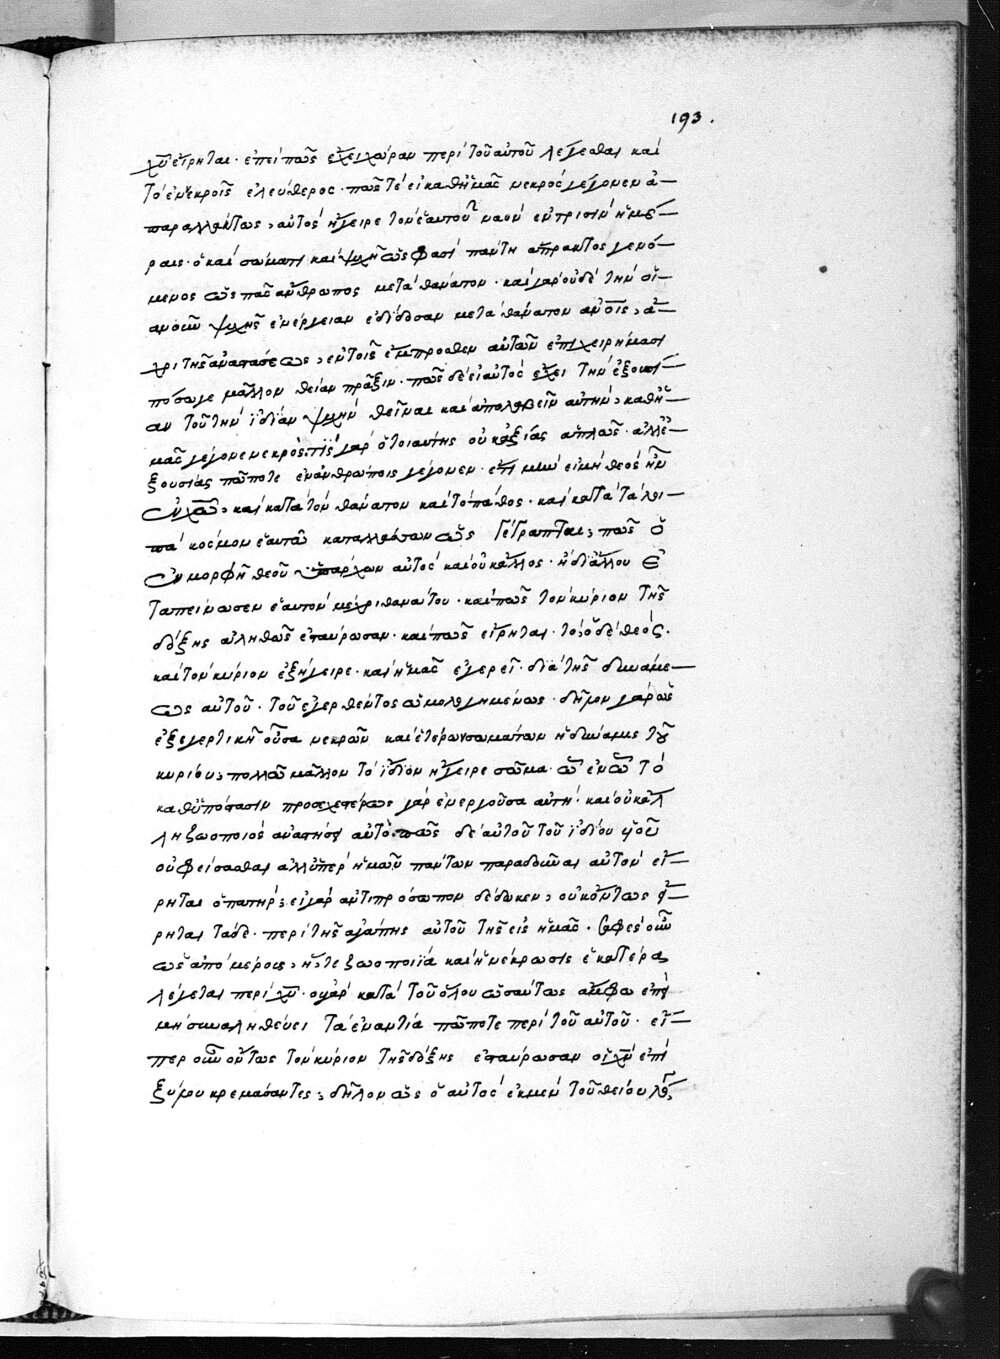 193.
χῦ εἴρηται· ἐπεὶ πῶς ἔχει χώραν περὶ τοῦ αὐτοῦ λέγεσθαι καὶ
τὸ ἐν νεκροῖς ἐλεύθερος· πῶς τέ εἰ καθ' ἡμᾶς νεκρὸς γέγονεν ἀ-
παραλλάκτως, αὐτὸς ἤγειρε τὸν ἑαυτοῦ ναὸν ἐν τρισὶν ἡμέ-
ραις· ὁ καὶ σώματι καὶ ψυχῇ ὥς φασι πάντη ἄπρακτος γενό-
μενος ὡς πᾶς ἄνθρωπος μετὰ θάνατον· καὶ γὰρ οὐδὲ τὴν οἵ-
ανοῦν ψυχῆς ἐνέργειαν ἐδίδοσαν μετὰ θάνατον αὐτοῖς, ἄ-
χρι τῆς ἀναστάσεως, ἐν τοῖς ἔμπροσθεν αὐτῶν ἐπιχειρήμασι
πόσω γε μᾶλλον θείαν πρᾶξιν· πῶς δὲ εἰ αὐτὸς ἔχει τὴν ἐξουσί-
αν τοῦ τὴν ἰδίαν ψυχὴν θεῖναι καὶ ἀπολαβεῖν αὐτὴν, καθ' ἡ-
μᾶς γέγονε νεκρός· τίς γὰρ ὁ τοιαύτης οὐκ ἀξίας ἁπλῶς· ἀλλ' ἐ-
ξουσίας πώποτε ἐν ἀνθρώποις γέγονεν· ἔτι μὴν εἰ μὴ θεὸς ἦν
ἐν χῶ, καὶ κατὰ τὸν θάνατον καὶ τὸ πάθος· καὶ κατὰ τἆλλα
κόσμον ἑαυτῶ καταλλάσσων ὡς γέγραπται, πῶς ὁ
ἐν μορφῇ θεοῦ ὑπάρχων αὐτὸς καὶ οὐκ ἄλλος· ἢ δι' ἄλλου ἐ
ταπείνωσεν ἑαυτὸν μέχρι θανάτου· καὶ πῶς τὸν κύριον τῆς
δόξης ἀληθῶς ἐσταύρωσαν· καὶ πῶς εἴρηται· τὸ, ὁ δὲ θεός.
καὶ τὸν κύριον ἐξήγειρε· καὶ ἡμᾶς ἐγερεῖ· διὰ τῆς δυνάμε-
ως αὐτοῦ· τοῦ ἐγερθέντος ὡμολογημένως· δῆλον γὰρ ὡς
ἐξεγερτικὴ οὖσα νεκρῶν καὶ ἑτέρων σωμάτων ἡ δύναμις τοῦ
κυρίου, πολλῶ μᾶλλον τὸ ἴδιον ἤγειρε σῶμα· ὧ ἐν ὧ τὸ
καθ' ὑπόστασιν προσεχεστέρως γὰρ ἐνεργοῦσα αὐτὴ· καὶ οὐκ ἄλ
λη ζωοποιὸς ἀνέστησεν αὐτό· πῶς δὲ αὐτοῦ τοῦ ἰδίου υἱοῦ
οὐ φείσασθαι ἀλλ' ὑπὲρ ἡμῶν πάντων παραδοῦναι αὐτὸν εἴ-
ρηται ὁ πατὴρ; εἰ γὰρ ἀντιπρόσωπον δέδωκεν, οὐκ ὄντως εἴ-
ρηται τάδε· περὶ τῆς ἀγάπης αὐτοῦ τῆς εἰς ἡμᾶς· σαφὲς οὖν
ὡς ἀπὸ μέρους, ἥ τε ζωοποιΐα καὶ ἡ νέκρωσις ἑκατέρα
λέγεται περὶ χῦ· οὐ γὰρ κατὰ τοῦ ὅλου ὡσαύτως ἄμφω ἐπεὶ
μὴ συναληθεύει τὰ ἐναντία πώποτε περὶ τοῦ αὐτοῦ· εἴ-
περ οὖν ὄντως τὸν κύριον τῆς δόξης ἐσταύρωσαν οἱ χν ἐπὶ
ξύλου κρεμάσαντες, δῆλον ὡς ὁ αὐτὸς ἐκ μὲν τοῦ θείου λό,